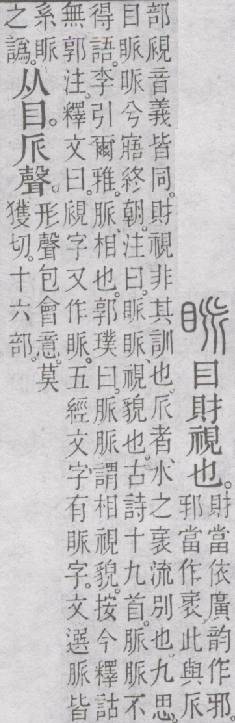 𥆞目財視也。
財當依廣韵作邪
邪當作衺此與𠂢
部覛音義皆同。財視非其訓也。𠂢者、水之衺流別也。九思
目眽眽兮寤終朝。注曰。眽眽視貌也。古詩十九首。脈脈不
得語。李引爾雅。脈、相也。郭璞曰。脈脈謂相視貌。按今釋詁
無郭注。釋文曰。覛字又作眽。五經文字有眽字。文選脈皆
系眽
之譌。
从目。𠂢聲。
形聲包會意。莫
獲切。十六部。